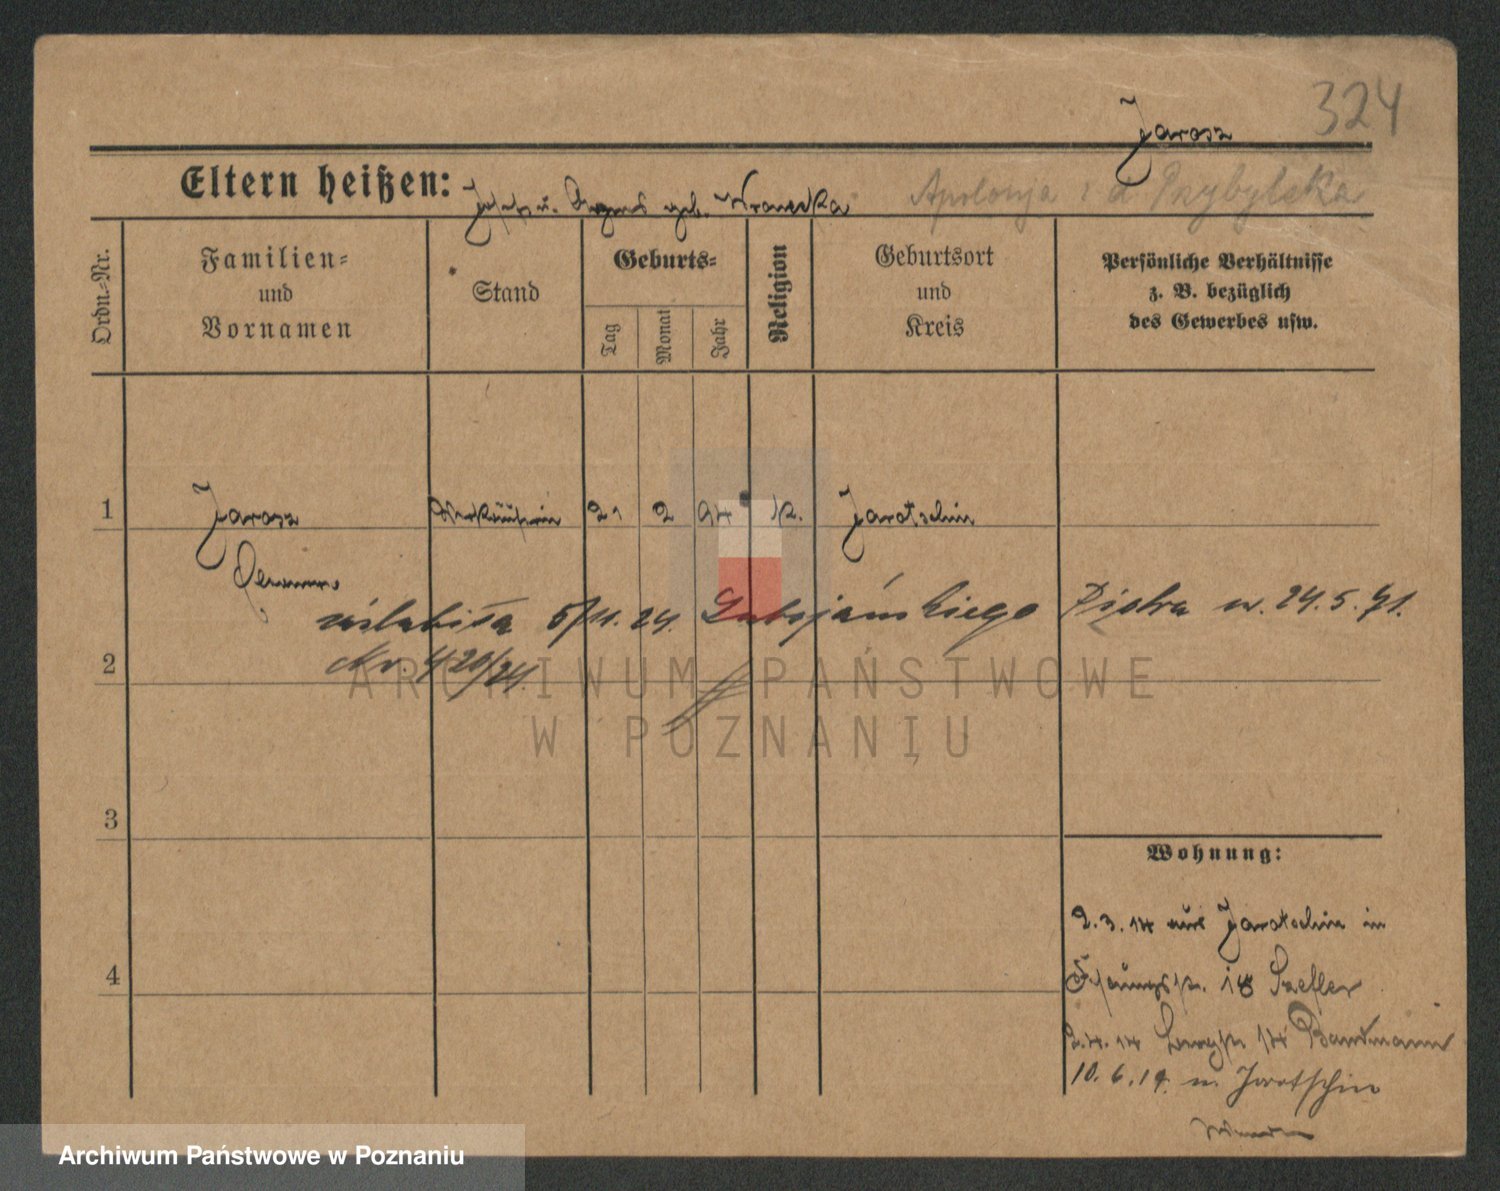 324
Jarosz
Eltern heißen: Joseph u. Agnes geb. Wronecka Apolonja z d Przybylska
Ordn.-Nr.
Familien-
und
Vornamen
Stand
Geburts-
Tag
Monat
Jahr
Religion
Geburtsort
und
Kreis
Persönliche Verhältnisse
z. B. bezüglich
des Gewerbes usw.
1 Jarosz 21 2 94 k. Jarotschin
zaślubiła 5/11. 24. Piotra ur. 24.5.91.
Nr. 420/24
2
3
4
Wohnung:
2.3.14 aus Jarotschin in
18 Szefler
2.4.14 14
10.6.19. n. Jarotschin
ARCHIWUM PAŃSTWOWE
W POZNANIU
Archiwum Państwowe w Poznaniu